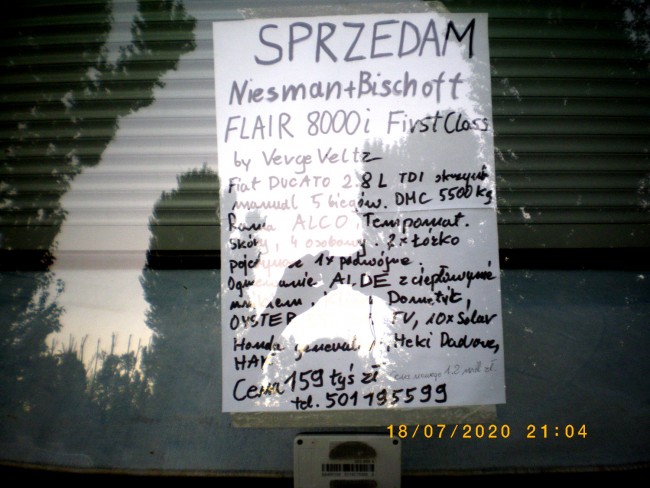 SPRZEDAM
Niesman+Bischoff
FLAIR 8000i First Class
by Verge Veltz
Fiat DUCATO 2.8L TDI skrzynia
manual 5 biegów. DMC 5500kg
Rama ALCO, Tempomat.
Skóry, 4 osobowy. 2x Łóżko
pojedyncze 1x podwójne.
Ogrzewanie ALDE z ciepłowymie
Dometik,
OYSTER TV, 10x Solar
Honda Heki Dachowe,
HAK
Cena 159 tyś zł
tel. 501195599
18/07/2020 21:04